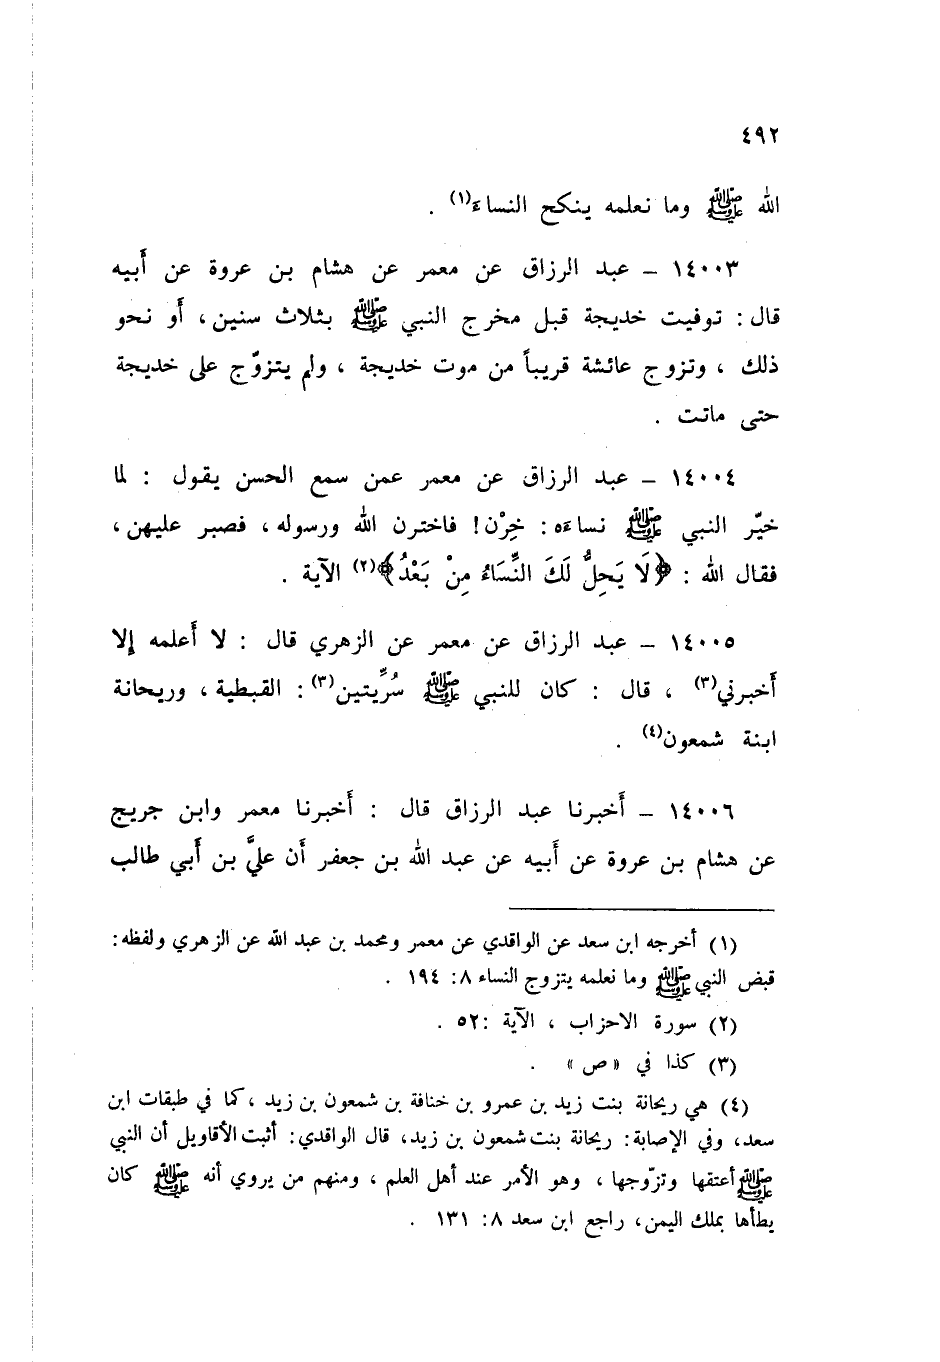 ٤٩٢
الله ﷺ وما نعلمه ينكح النساء(١) .
١٤٠٠٣ – عبد الرزاق عن معمر عن هشام بن عروة عن أَبيه
قال : توفيت خديجة قبل مخرج النبي ﷺ بثلاث سنين ، أَو نحو
ذلك ، وتزوج عائشة قريباً من موت خديجة ، ولم يتزوّج على خديجة
حتى ماتت .
١٤٠٠٤ – عبد الرزاق عن معمر عمن سمع الحسن يقول : لما
خيّر النبي ﷺ نساءه : خِرْن ! فاخترن الله ورسوله ، فصبر عليهن ،
فقال الله : ﴿لَا يَحِلُّ لَكَ النِّسَاءُ مِنْ بَعْدُ﴾(٢) الآية .
١٤٠٠٥ – عبد الرزاق عن معمر عن الزهري قال : لا أَعلمه إلا
أَخبرني(٣) ، قال : كان للنبي ﷺ سُرِّيتين(٣) : القبطية ، وريحانة
ابنة شمعون(٤) .
١٤٠٠٦ – أَخبرنا عبد الرزاق قال : أَخبرنا معمر وابن جريج
عن هشام بن عروة عن أَبيه عن عبد الله بن جعفر أَن عليَّ بن أَبي طالب
(١) أخرجه ابن سعد عن الواقدي عن معمر ومحمد بن عبد الله عن الزهري ولفظه :
قبض النبي ﷺ وما نعلمه يتزوج النساء ٨ : ١٩٤ .
(٢) سورة الاحزاب ، الآية : ٥٢ .
(٣) كذا في « ص » .
(٤) هي ريحانة بنت زيد بن عمرو بن خنافة بن شمعون بن زيد ، كما في طبقات ابن
سعد ، وفي الإصابة : ريحانة بنت شمعون بن زيد ، قال الواقدي : أثبت الأقاويل أن النبي
ﷺ أعتقها وتزوّجها ، وهو الأمر عند أهل العلم ، ومنهم من يروي أنه ﷺ كان
يطأها بملك اليمن ، راجع ابن سعد ٨ : ١٣١ .